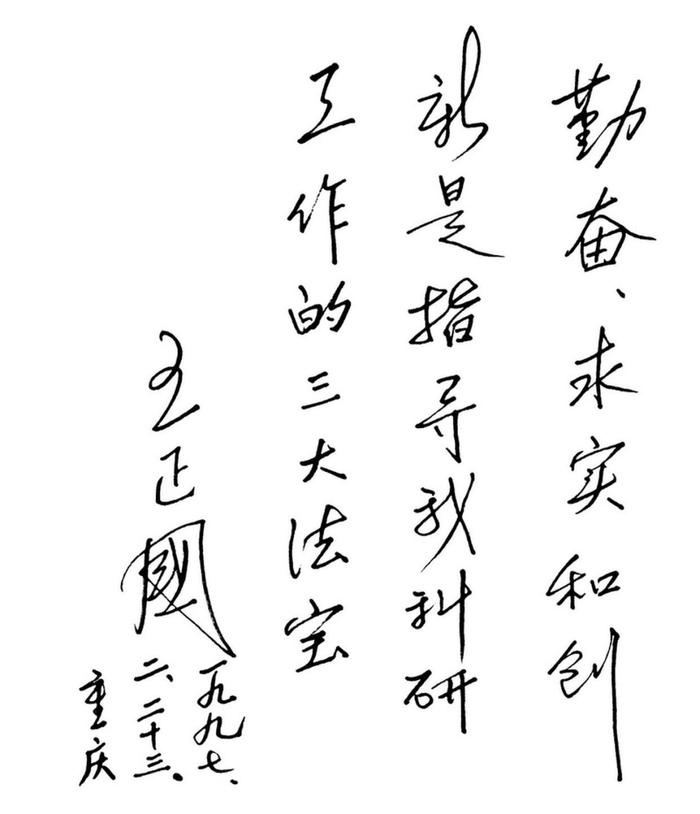 勤奋、求实和创
新是指导我科研
工作的三大法宝
王正國
一九九七、
二、二十三。
重庆